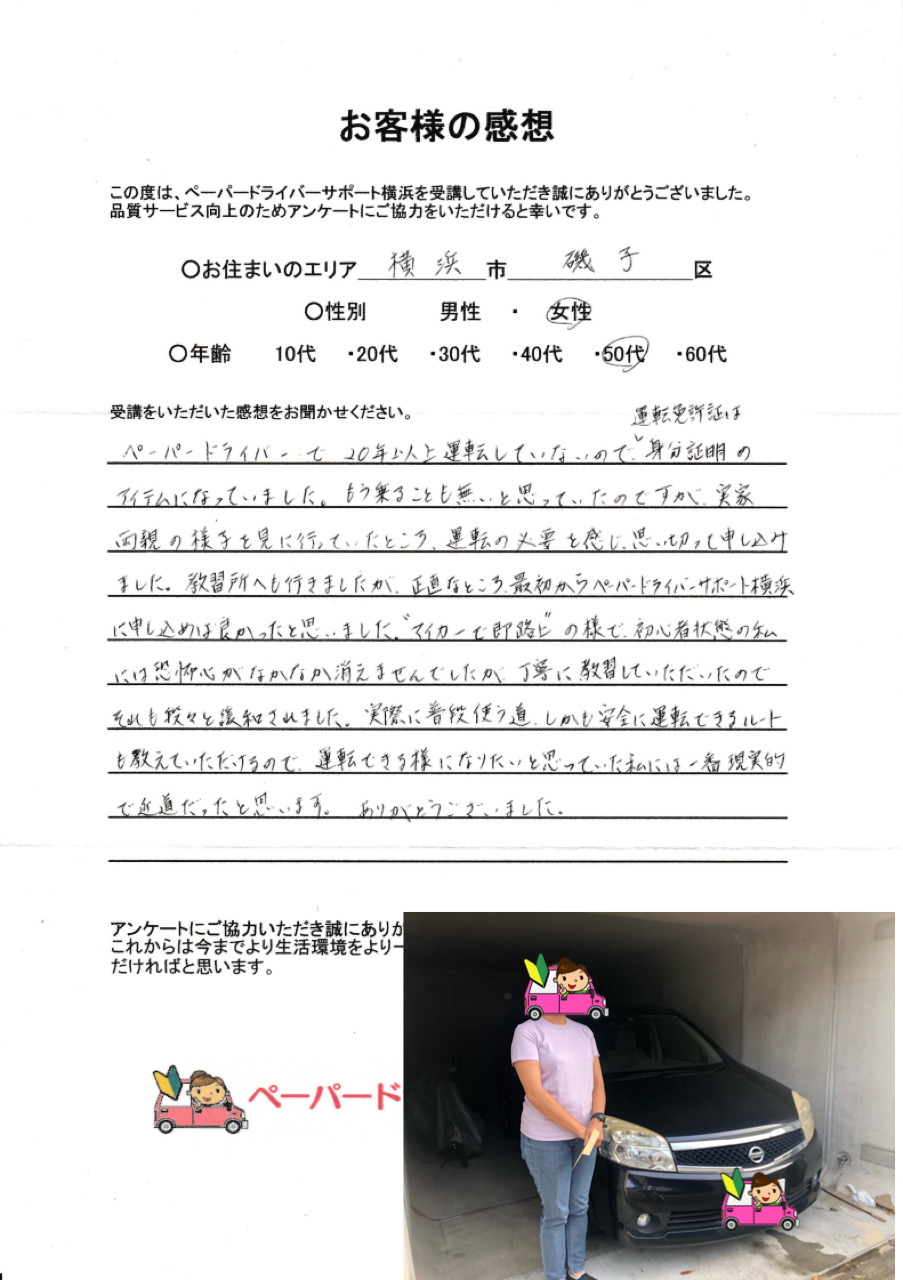 お客様の感想
この度は、ペーパードライバーサポート横浜を受講していただき誠にありがとうございました。
品質サービス向上のためアンケートにご協力をいただけると幸いです。
〇お住まいのエリア 横浜 市 磯子 区
〇性別 男性 ・ 女性
〇年齢 10代 ・20代 ・30代 ・40代 ・50代 ・60代
受講をいただいた感想をお聞かせください。
運転免許証は
ペーパードライバーで 20年以上運転していないので、"身分証明の
アイテムになっていました。もう乗ることも無いと思っていたのですが、実家
両親の様子を見に行っていたところ、運転の必要を感じ、思い切って申し込み
ました。教習所へも行きましたが、正直なところ、最初からペーパードライバーサポート横浜
に申し込めば良かったと思いました。"マイカーで即路上"の様で、初心者状態の私
には恐怖心がなかなか消えませんでしたが、丁寧に教習していただいたので
それも段々と緩和されました。実際に普段使う道、しかも安全に運転できるルート
も教えていただけるので、運転できる様になりたいと思っていた私には一番現実的
で近道だったと思います。 ありがとうございました。
アンケートにご協力いただき誠にありが
これからは今までより生活環境をより一
だければと思います。
ペーパード